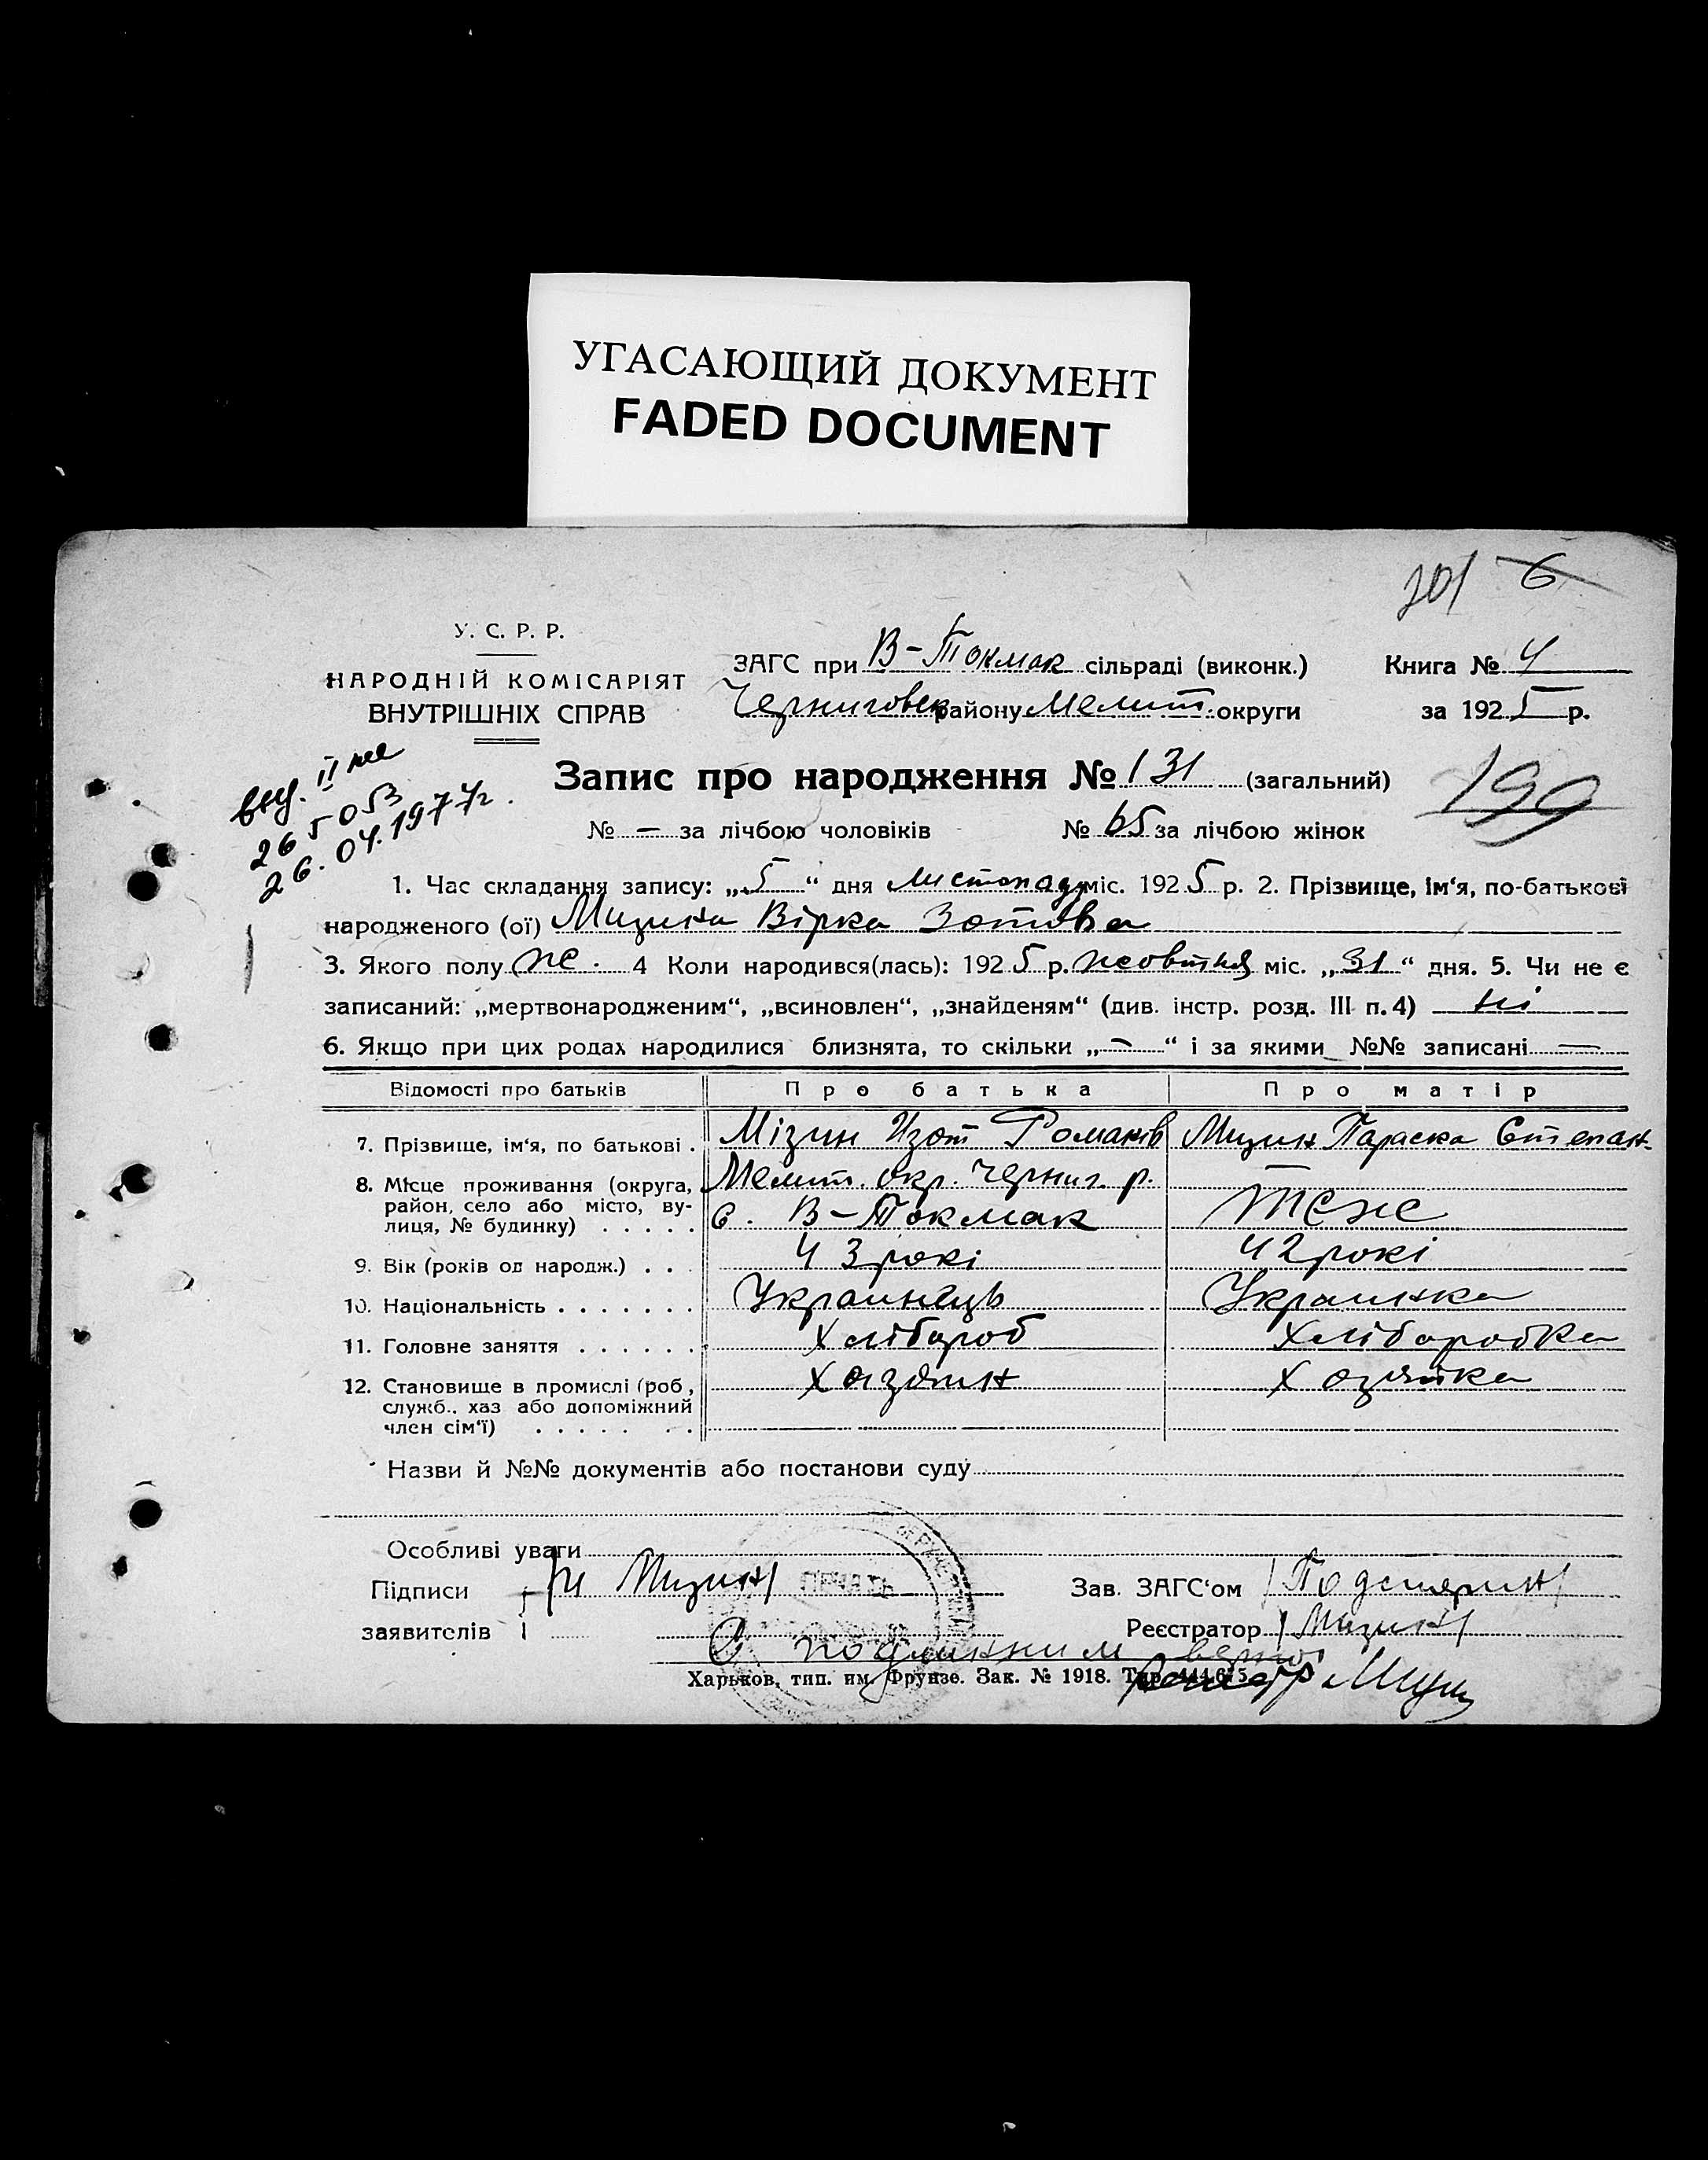 УГАСАЮЩИЙ ДОКУМЕНТ
FADED DOCUMENT
201 6
У. С. Р. Р.
НАРОДНІЙ КОМІСАРІЯТ
ВНУТРІШНІХ СПРАВ
ЗАГС при В-Токмак сільраді (виконк.)
Черниговск району Мелит. округи
Книга № 4
за 1925 р.
выд. II
265053
26.04.1977г.
Запис про народження № 131 (загальний)
199
№ — за лічбою чоловіків № 65 за лічбою жінок
1. Час складання запису: „5“ дня листопаду міс. 1925 р. 2. Прізвище, ім‘я, по-батькові
народженого (ої) Мизина Вірка Зотова
3. Якого полу ж. 4 Коли народився(лась): 1925 р. жовтня міс. „31“ дня. 5. Чи не є
записаний: „мертвонародженим“, „всиновлен“, „знайденям“ (див. інстр. розд. III п. 4) ні
6. Якщо при цих родах народилися близнята, то скільки „—“ і за якими №№ записані —
Відомості про батьків Про батька Про матір
7. Прізвище, ім‘я, по батькові . Мізин Изот Романів Мизин Параска Степан.
8. Місце проживання (округа, район, село або місто, вулиця, № будинку) . . . . . Мелит. окр. Черниг. р.
с. В-Токмак теже
9. Вік (років од народж.) . . . 43 рокі 42 рокі
10. Національність . . . . . . . Украинець Украинка
11. Головне заняття . . . . . . Хлібороб Хліборобка
12. Становище в промислі (роб., служб., хаз або допоміжний член сім‘ї) . . . . . . . Хазяин Хозяйка
Назви й №№ документів або постанови суду
Особливі уваги
Підписи Мизин Зав. ЗАГС‘ом
заявителів Реєстратор /Мизин/
ПЕЧАТЬ
С подлинним верно
Харьков, тип. им. Фрунзе. Зак. № 1918.